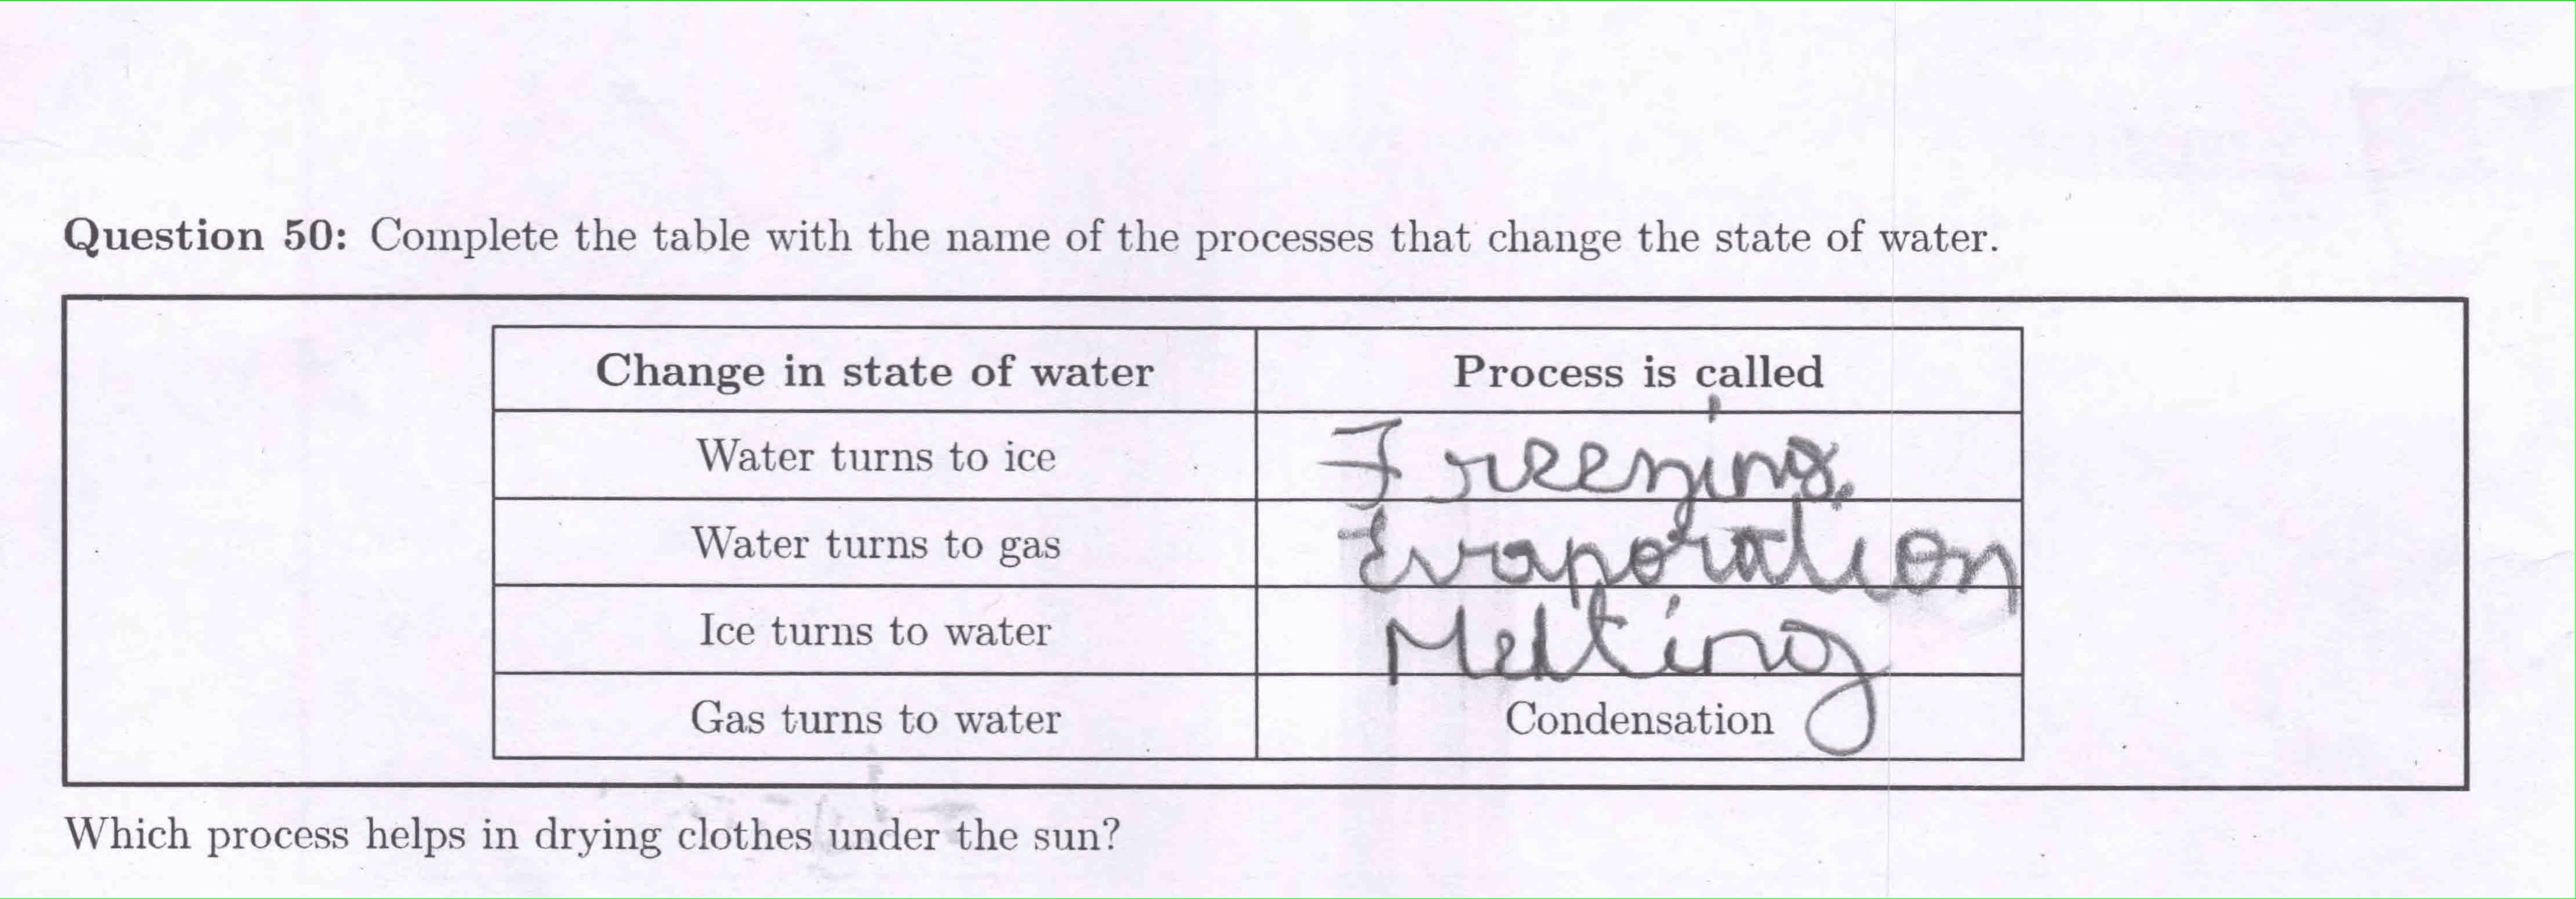 Question 50: Complete the table with the name of the processes that change the state of water.
Change in state of water Process is called
Water turns to ice Freezing.
Water turns to gas Evaporation
Ice turns to water Melting
Gas turns to water Condensation
Which process helps in drying clothes under the sun?